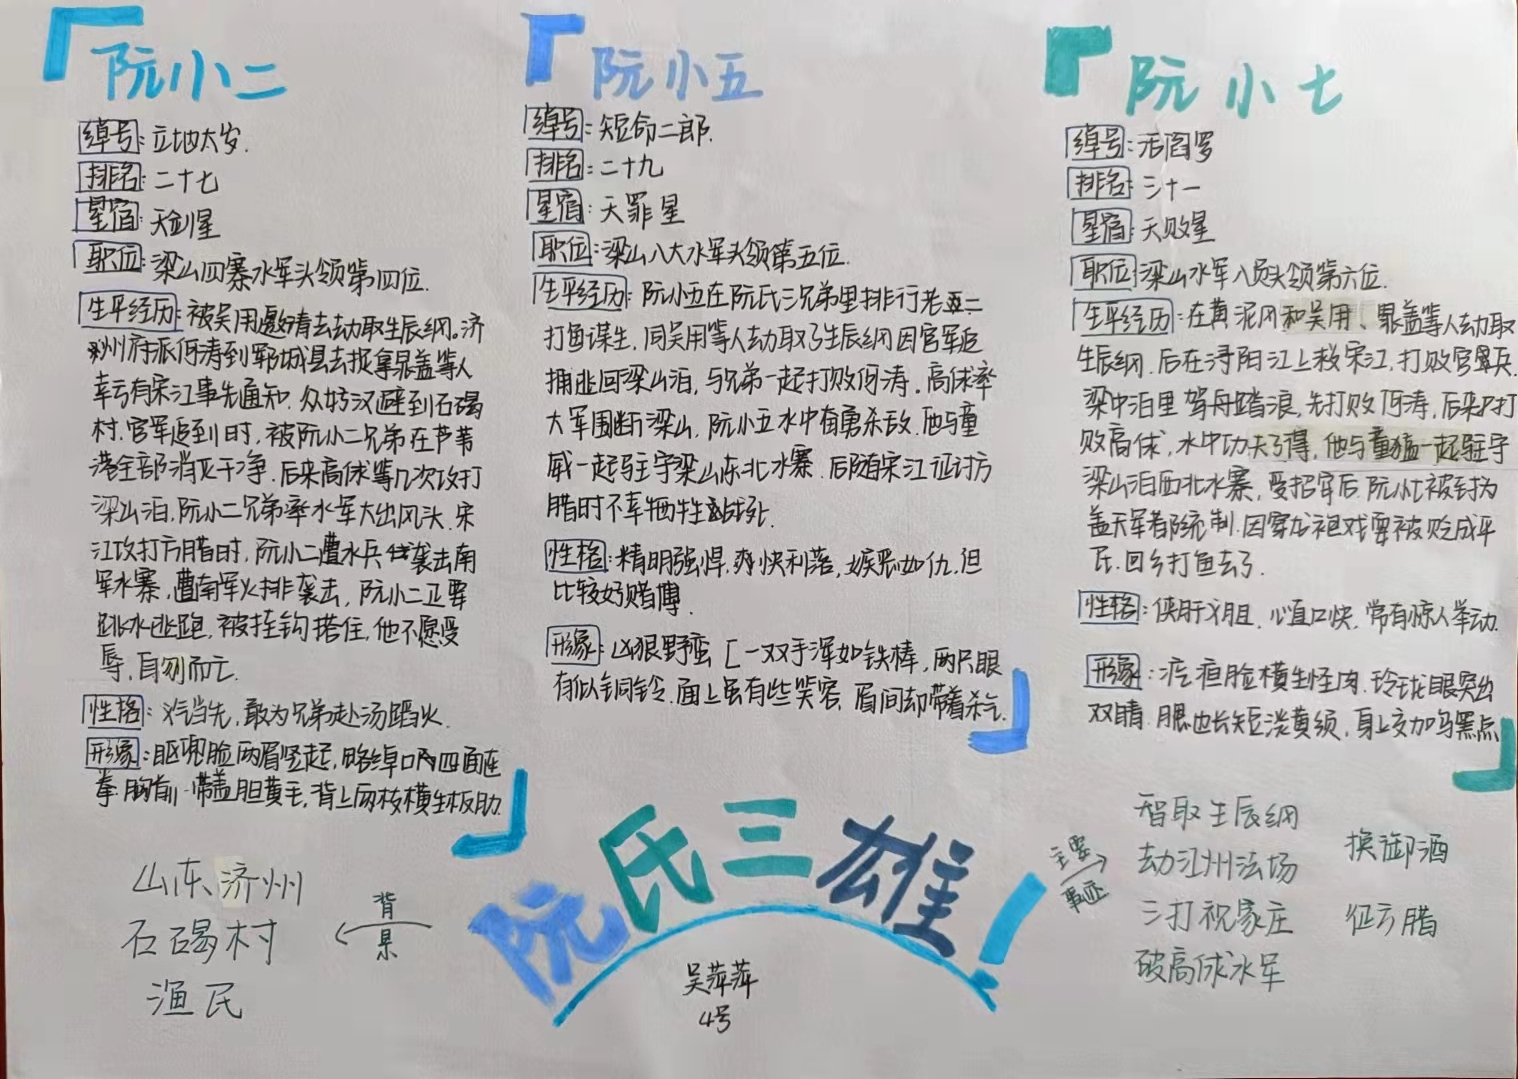 阮小二
绰号:立地太岁.
排名:二十七
星宿:天剑星
职位:梁山四寨水军头领第四位.
生平经历:被吴用邀请去劫取生辰纲。济
州府派何涛到郓城县去捉拿晁盖等人
幸亏有宋江事先通知.众好汉避到石碣
村.官军追到时,被阮小二兄弟在芦苇
港全部消灭干净.后来高俅等几次攻打
梁山泊.阮小二兄弟率水军大出风头.宋
江攻打方腊时,阮小二遭水兵袭击南
军水寨,遭南军火排袭击,阮小二正要
跳水逃跑,被挂钩搭住,他不愿受
辱,自刎而亡.
性格:义气当先,敢为兄弟赴汤蹈火.
形象:眍兜脸两眉竖起,略绰口两四面连
拳.胸前一带盖胆黄毛,背上两枝横生板肋.
阮小五
绰号:短命二郎.
排名:二十九
星宿:天罪星
职位:梁山八大水军头领第五位.
生平经历:阮小五在阮氏三兄弟里排行老二
打鱼谋生,同吴用等人劫取了生辰纲因官军追
捕逃回梁山泊,与兄弟一起打败何涛.高俅率
大军围断梁山,阮小五水中有勇杀敌.他与童
威一起驻守梁山东北水寨.后随宋江征讨方
腊时不幸牺牲战死.
性格:精明强悍,爽快利落,嫉恶如仇,但
比较好赌博.
形象:凶狠野蛮[一双手浑如铁棒,两只眼
有似铜铃.面上虽有些笑容,眉间却带着杀气.
阮小七
绰号:活阎罗
排名:三十一
星宿:天败星
职位:梁山水军八员头领第六位.
生平经历:在黄泥冈和吴用、晁盖等人劫取
生辰纲.后在浔阳江上救宋江,打败官兵.
梁中泊里驾舟踏浪,先打败何涛,后来打
败高俅,水中功夫了得,他与童猛一起驻守
梁山泊西北水寨,受招安后.阮小七被封为
盖天军都统制.因穿龙袍戏耍被贬成平
民.回乡打鱼去了.
性格:侠肝义胆,心直口快,常有惊人举动.
形象:疙疸脸横生怪肉.玲珑眼突出
双睛.腮边长短淡黄须,身上交加乌黑点
阮氏三雄!
吴萍萍
4号
背景
山东济州
石碣村
渔民
主要
事迹
智取生辰纲
劫江州法场
三打祝家庄
破高俅水军
换御酒
征方腊